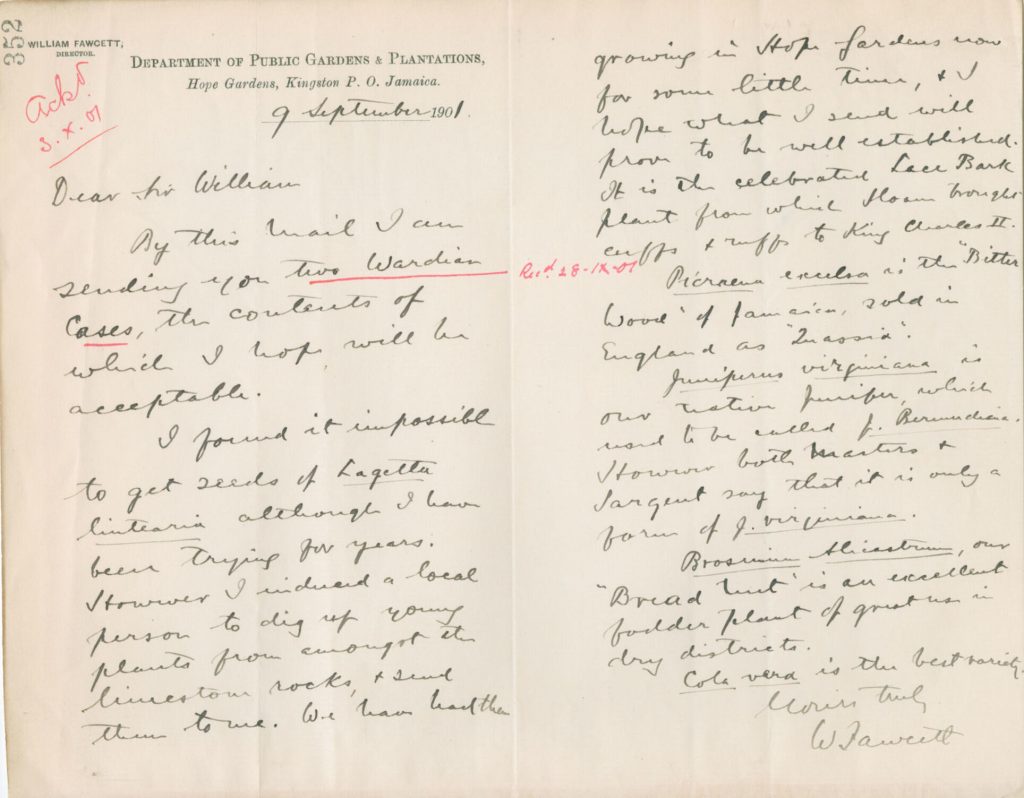 352
WILLIAM FAWCETT,
DIRECTOR.
DEPARTMENT OF PUBLIC GARDENS & PLANTATIONS,
Hope Gardens, Kingston P. O. Jamaica.
9 September 1901.
Ackd
3.X.01
Dear Sir William
By this mail I am
sending you two Wardian
Cases, the contents of
which I hope will be
acceptable.
I found it impossible
to get seeds of Lagetta
lintearia although I have
been trying for years.
However I induced a local
person to dig up young
plants from amongst the
limestone rocks, & send
them to me. We have had them
growing in Hope Gardens now
for some little time, & I
hope what I send will
prove to be well established.
It is the celebrated Lace Bark
plant from which Sloane brought
cuffs & ruffs to King Charles II.
Recd. 28-IX-01
Picraena excelsa is the "Bitter
Wood" of Jamaica, sold in
England as "Quassia".
Juniperus virginiana is
our native Juniper, which
used to be called J. Bermudiana.
However both Masters &
Sargent say that it is only a
form of J. virginiana.
Brosimum Alicastrum, our
"Bread Nut" is an excellent
fodder plant of great use in
dry districts.
Cola vera is the best variety.
Yours truly
W Fawcett